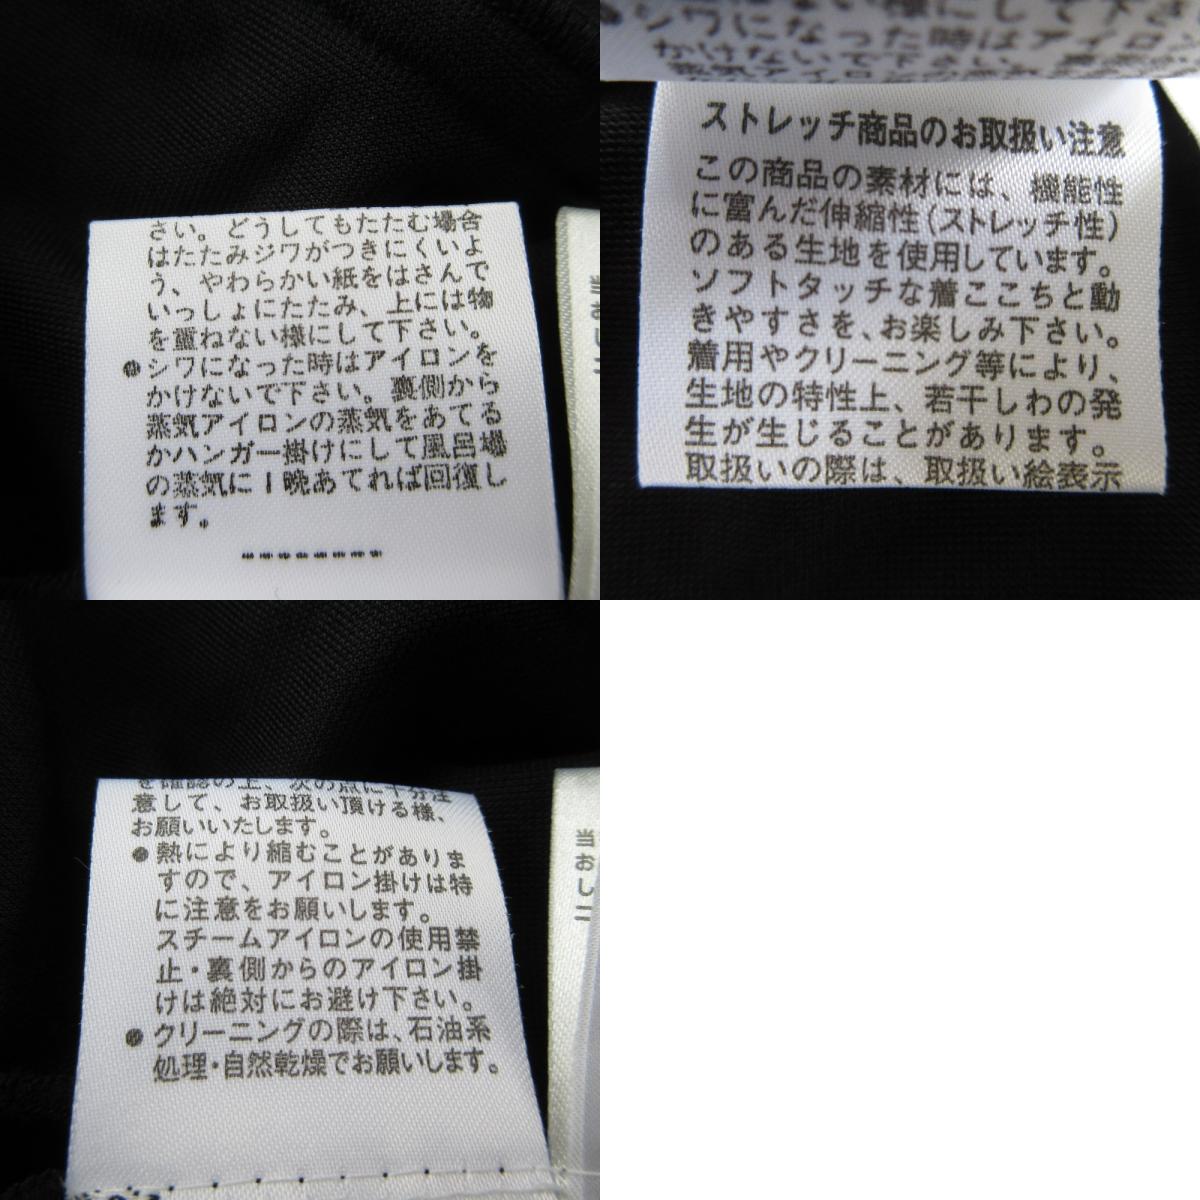 さい。どうしてもたたむ場合
はたたみジワがつきにくいよ
う、やわらかい紙をはさんで
いっしょにたたみ、上には物
を重ねない様にして下さい。
●シワになった時はアイロンを
かけないで下さい。裏側から
蒸気アイロンの蒸気をあてる
かハンガー掛けにして風呂場
の蒸気に1晩あてれば回復し
ます。
--------
当
お
し
ない様にして下さ
●シワになった時はアイロン
かけないで下さい。
蒸気アイロン
ストレッチ商品のお取扱い注意
この商品の素材には、機能性
に富んだ伸縮性(ストレッチ性)
のある生地を使用しています。
ソフトタッチな着ここちと動
きやすさを、お楽しみ下さい。
着用やクリーニング等により、
生地の特性上、若干しわの発
生が生じることがあります。
取扱いの際は、取扱い絵表示
を確認の上、次の点に十分注
意して、お取扱い頂ける様、
お願いいたします。
●熱により縮むことがありま
すので、アイロン掛けは特
に注意をお願いします。
スチームアイロンの使用禁
止・裏側からのアイロン掛
けは絶対にお避け下さい。
●クリーニングの際は、石油系
処理・自然乾燥でお願いします。
当
お
し
ニ